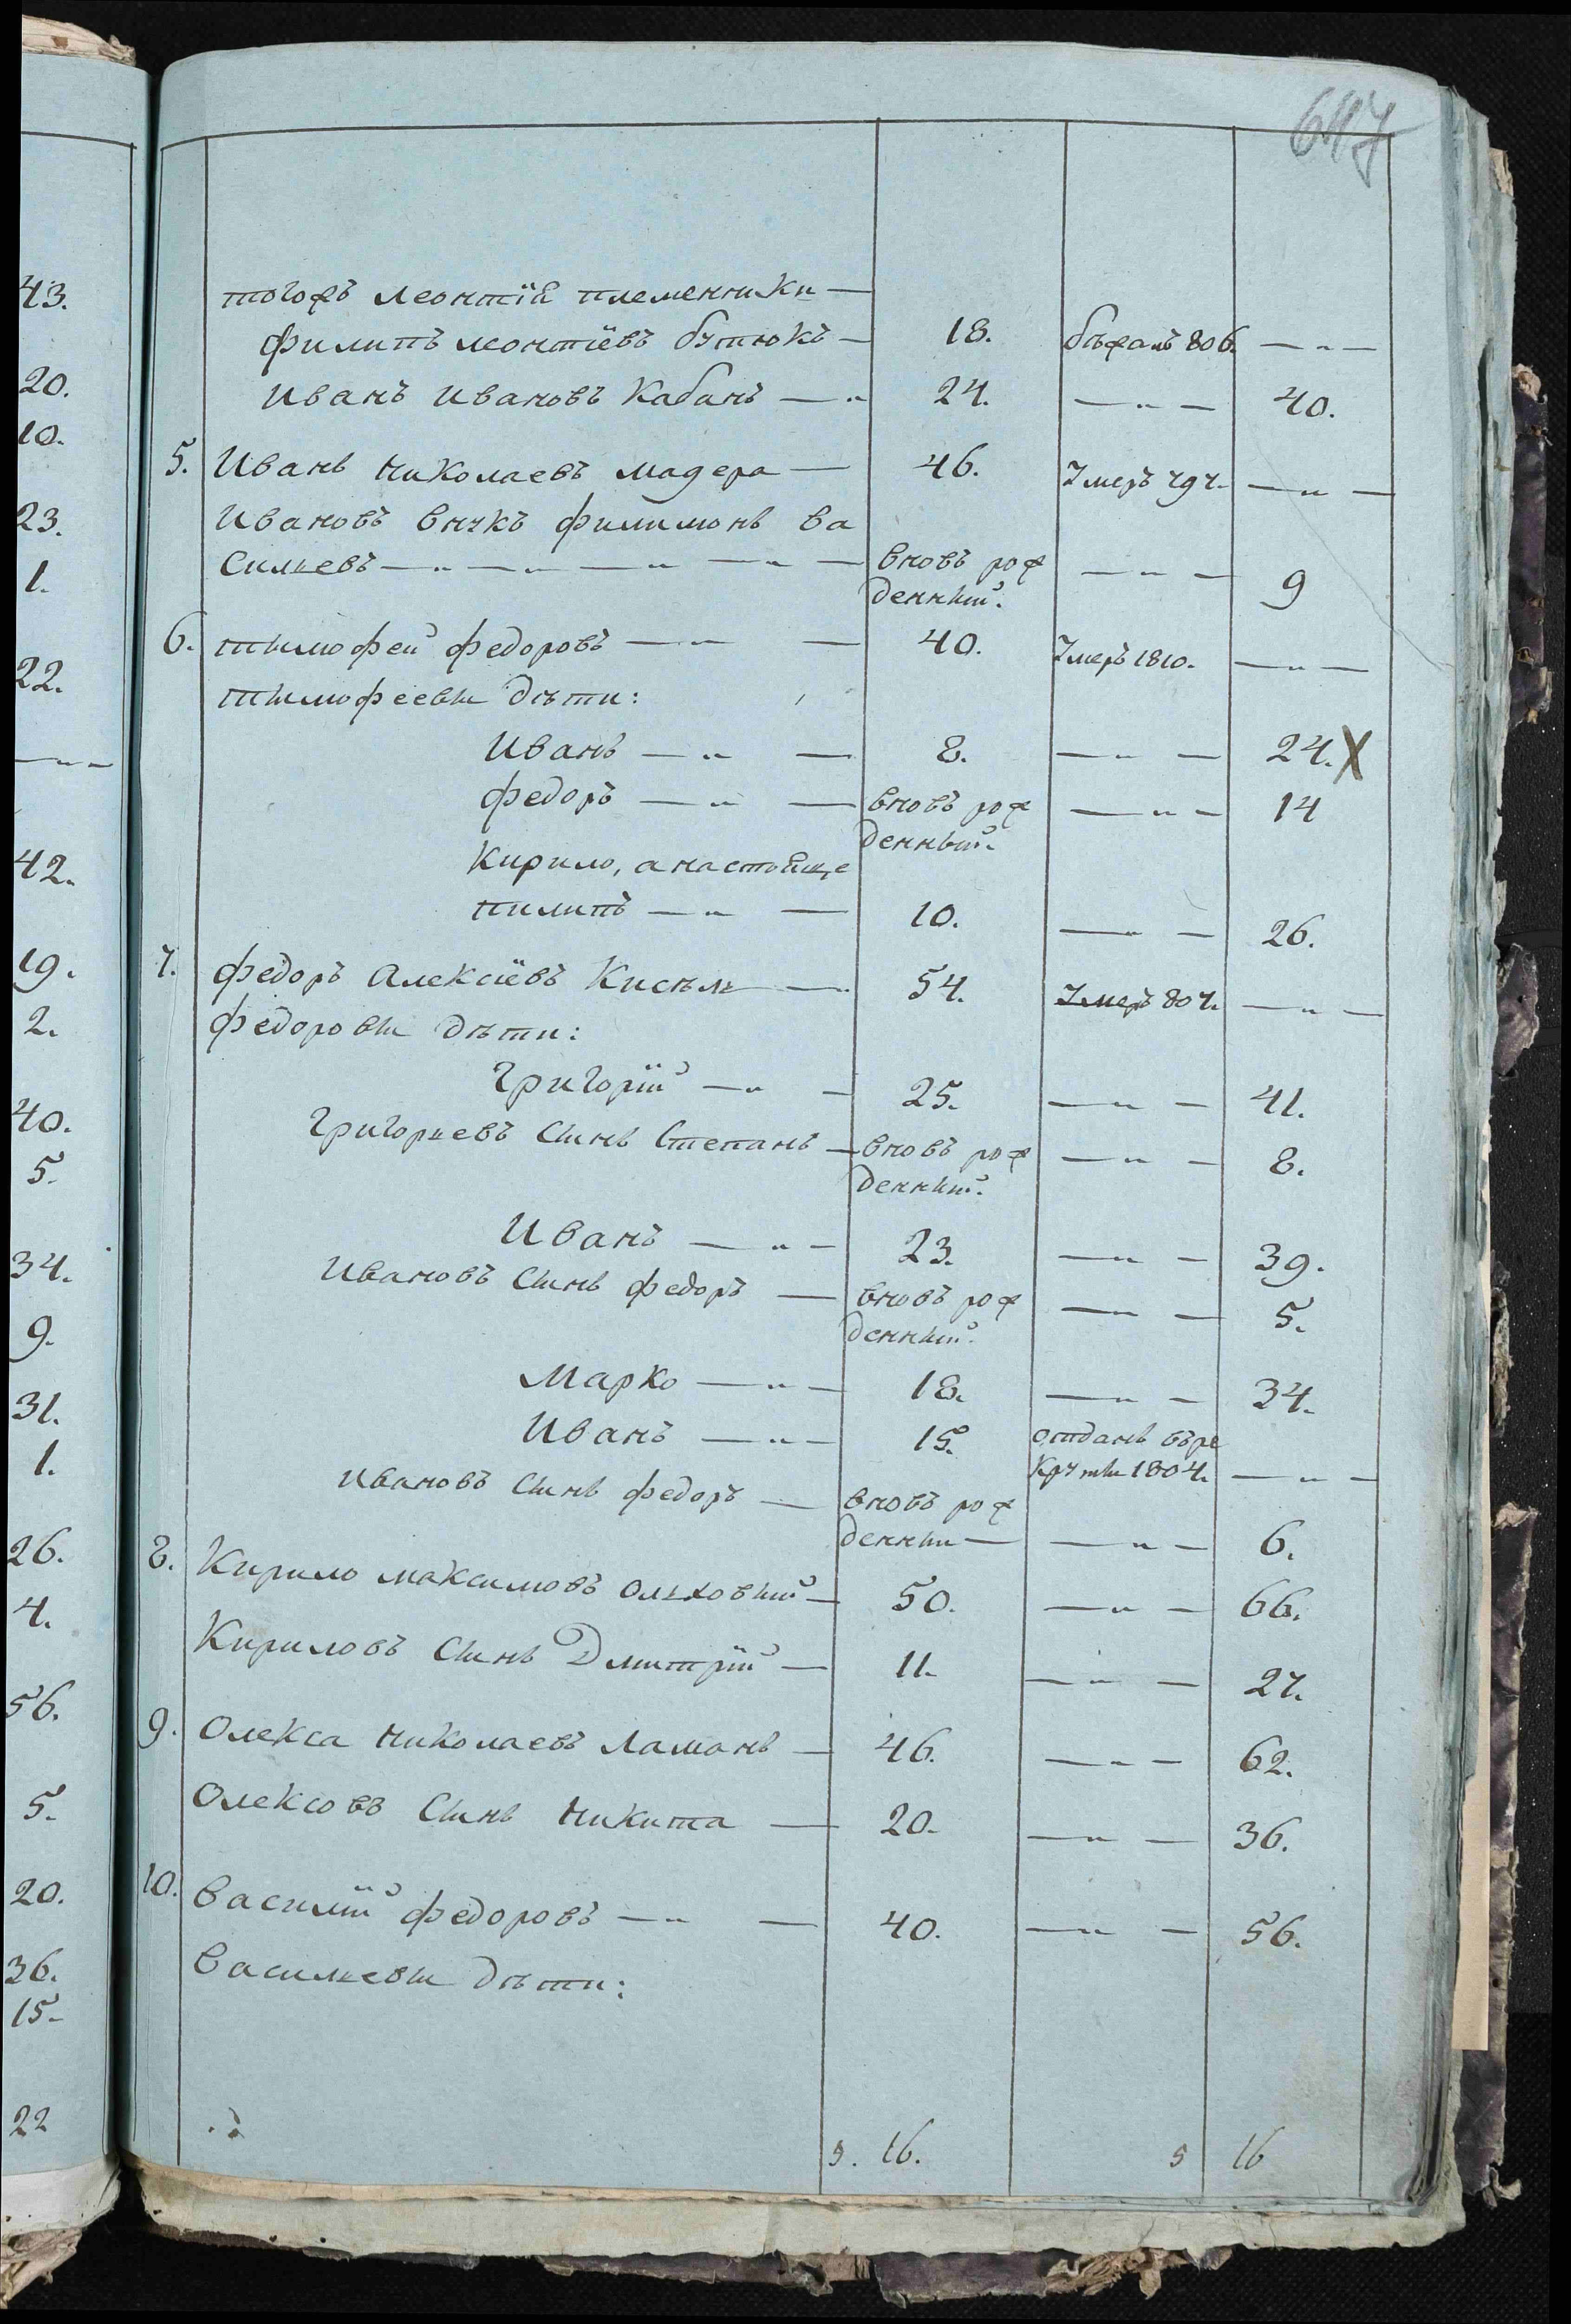 647
тогожъ Леонтія племенники —
Филипъ Леонтіевъ Бутюкъ — 18. бѣжалъ 806. — „ —
Иванъ Ивановъ Кабанъ — „ 24. — „ — 40.
5. Иванъ Николаевъ Мадера — 46. Умеръ 797. — „ —
Ивановъ внукъ Филимонъ Ва
сильевъ — „ — „ — „ — „ — вновь рож — „ — 9
денный.
6. Тимофей Федоровъ — „ — 40. Умеръ 1810. — „ —
Тимофеевы дѣти:
Иванъ — „ — 8. — „ — 24. X
Федоръ — „ — вновь рож — „ — 14
денный.
Кирило, а настояще
Пилипъ — „ — 10. — „ — 26.
7. Федоръ Алексіевъ Кисѣль — 54. Умеръ 807. — „ —
Федоровы дѣти:
Григорій — „ — 25. — „ — 41.
Григорьевъ сынъ Степанъ — вновь рож — „ — 8.
денный.
Иванъ — „ — 23. — „ — 39.
Ивановъ сынъ Федоръ — вновь рож — „ — 5.
денный.
Марко — „ — 18. — „ — 34.
Иванъ — „ — 15. отданъ въ ре
круты 1804. — „ —
Ивановъ сынъ Федоръ — вновь рож
денны — — „ — 6.
8. Кирило Максимовъ Ольховый — 50. — „ — 66.
Кириловъ сынъ Дмитрій — 11. — „ — 27.
9. Олекса Николаевъ Ламанъ — 46. — „ — 62.
Олексовъ сынъ Никита — 20. — „ — 36.
10. Василій Федоровъ — „ — 40. — „ — 56.
Васильевы дѣти:
5. 16. 5 16
43.
20.
10.
23.
1.
22.
— „ —
42.
19.
2.
40.
5.
34.
9.
31.
1.
26.
4.
56.
5.
20.
36.
15.
22